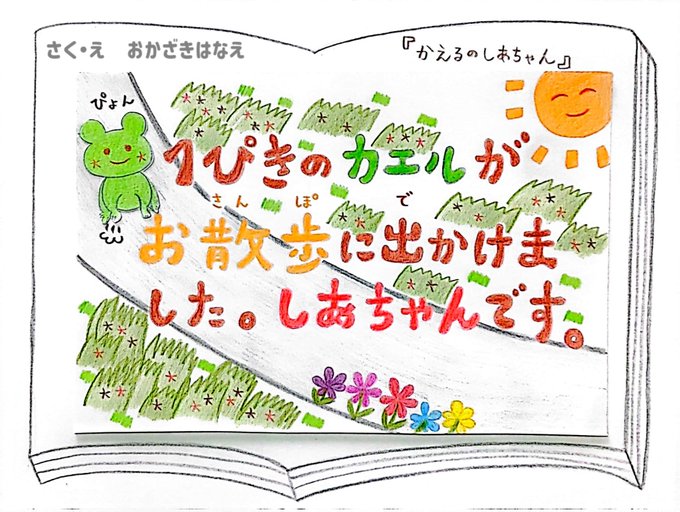 さく・え おかざきはなえ
『かえるのしあちゃん』
ぴょん
1ぴきのカエルが
さんぽ で
お散歩に出かけま
した。しあちゃんです。